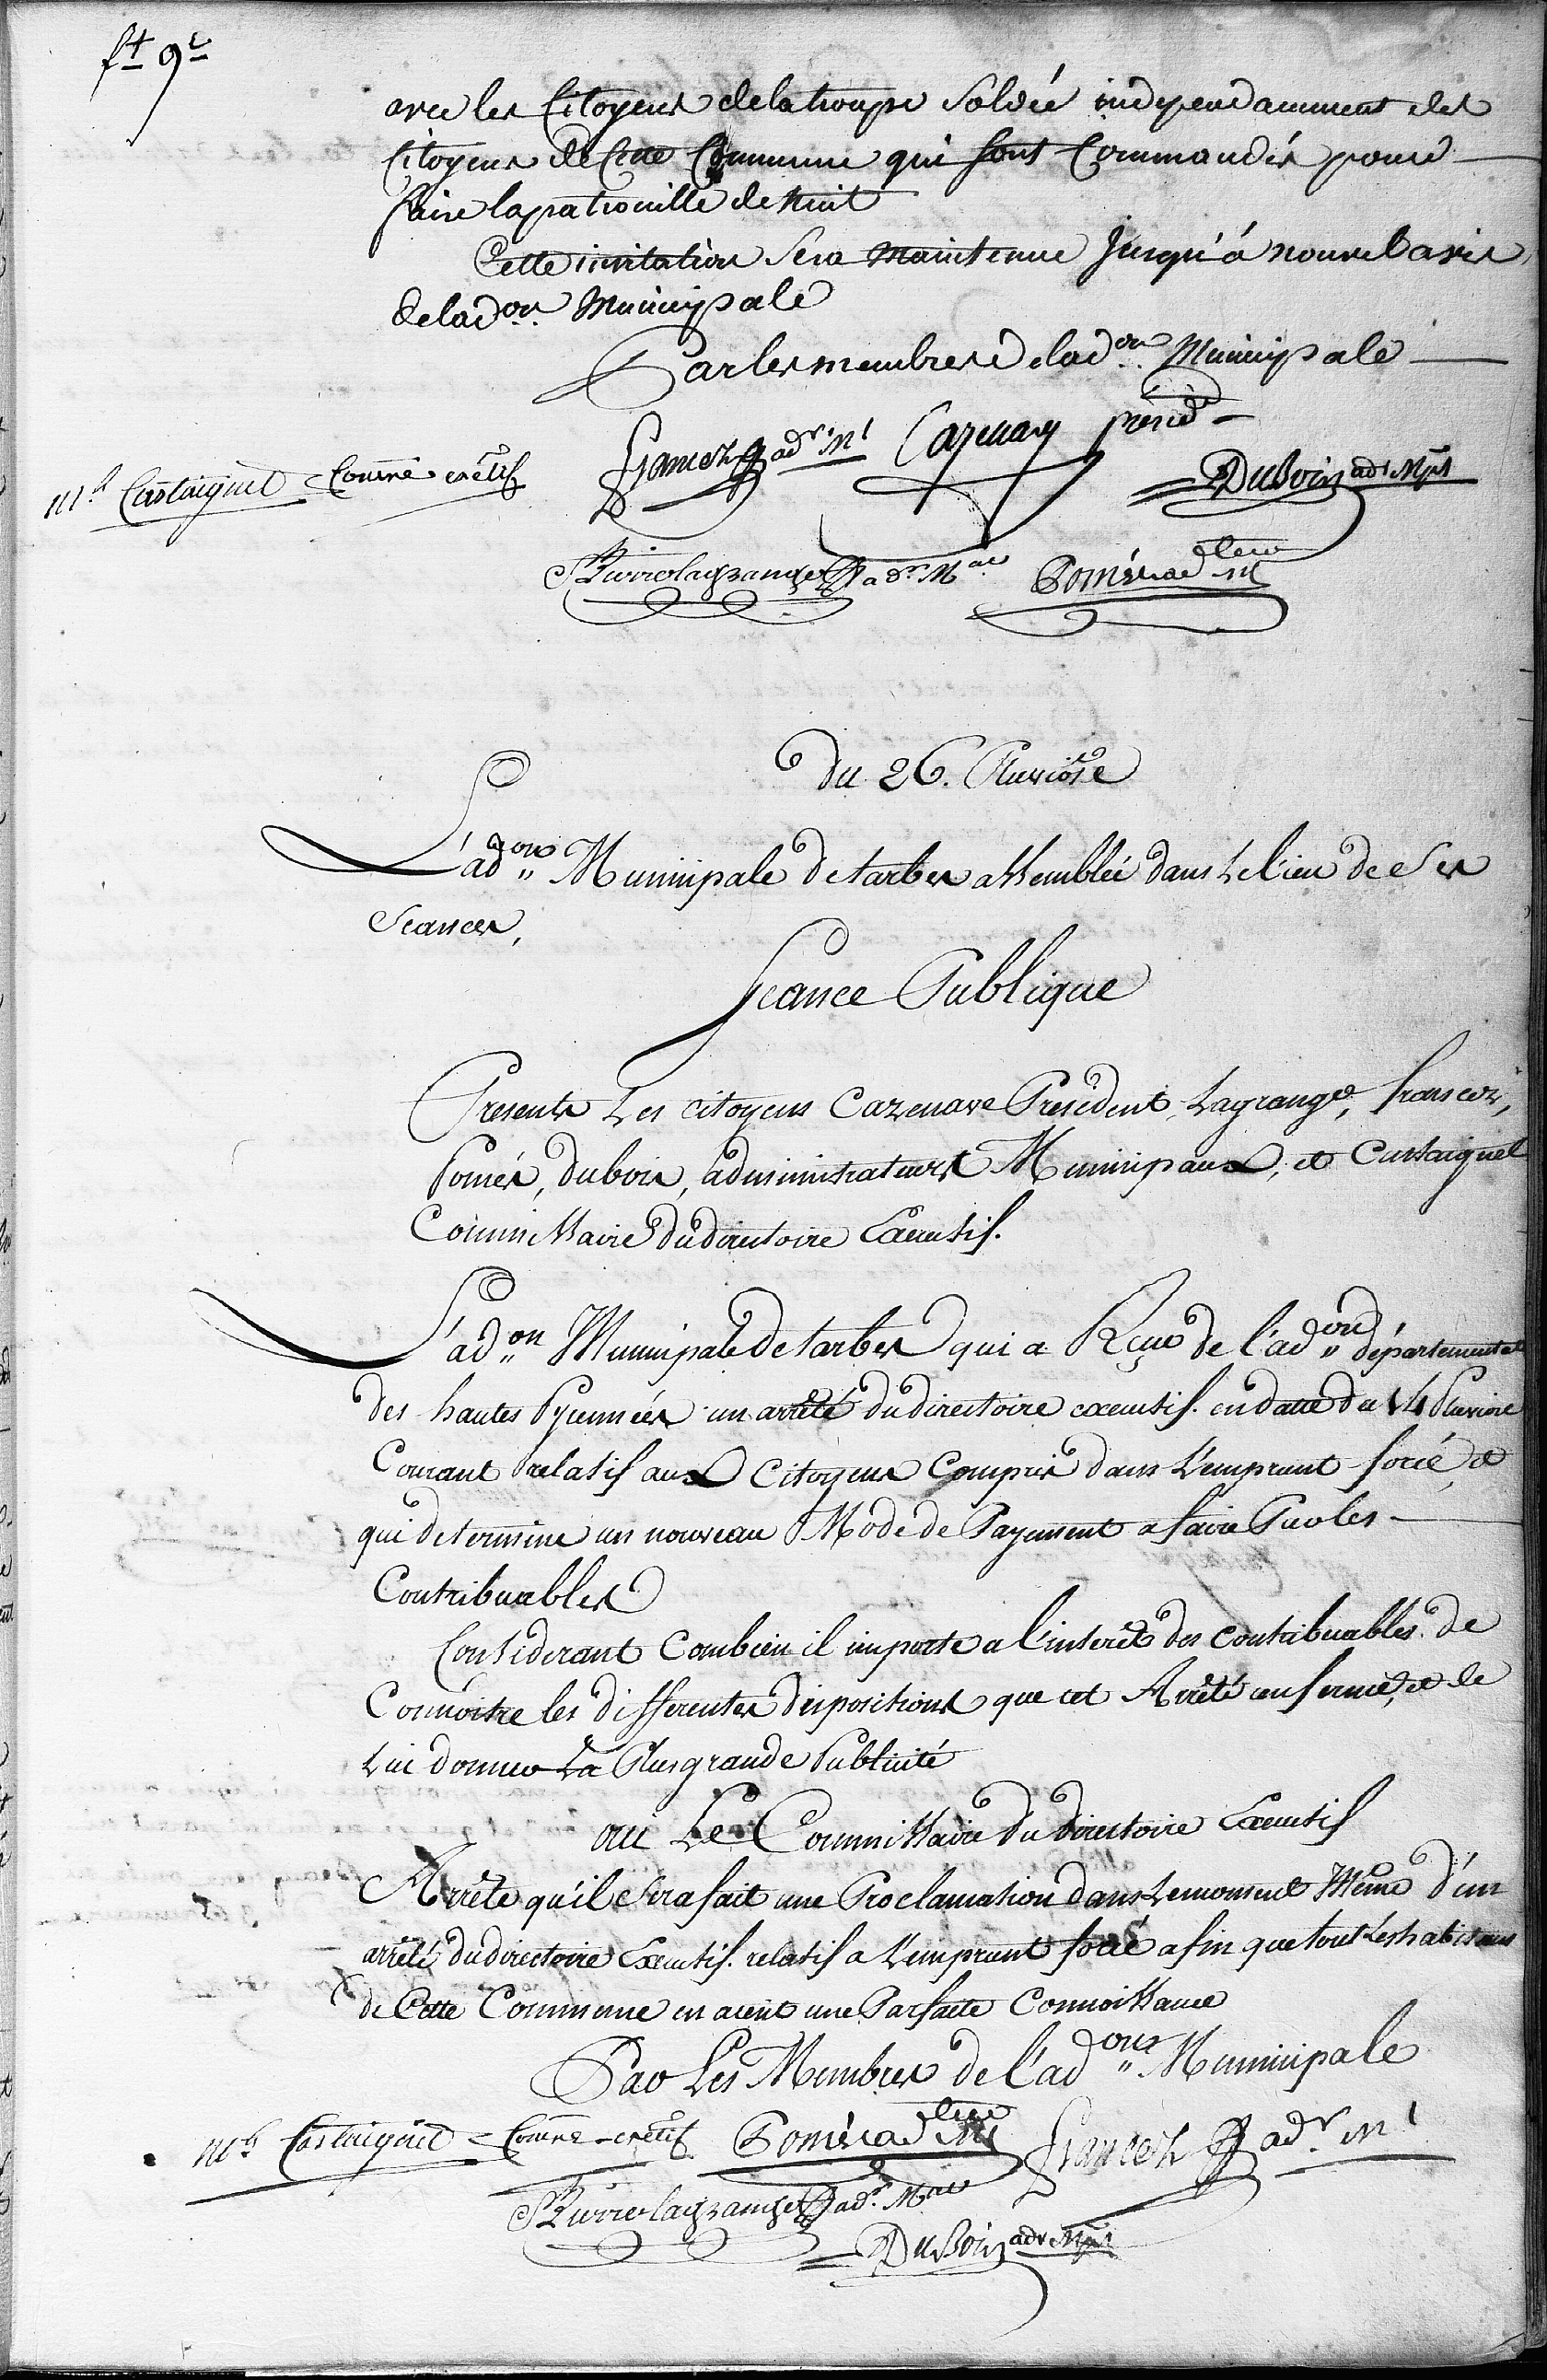 ft 9e
avec les Citoyens de la troupe Soldée independamment des
Citoyens de Cette Commune qui sont Commandés pour
faire la patrouille de Nuit
Cette invitation Sera Maintenue Jusqu'à nouvel avis
de lad.on Municipale
Par les membres de lad.on Municipale
francez adr. Ml Cazenave présid.
Ml. Castaignet Comre exétif DuBois adr Mpl
Lagrange adr. Mal Pomés ad.teur M
du 26. Pluviose
L'ad.on Municipale de tarbes assemblée dans Le lieu de Ses
Seances,
Seance Publique
Presents Les citoyens Cazenave President, Lagrange, francez,
Pomés, dubois, administrateurs Municipaux, et Castaignet
Commissaire du directoire Executif.
L'ad.on Municipale de tarbes qui a Reçu de l'ad.on départementale
des hautes Pyrennées un arrêté du directoire executif. en datte du 14 Pluviose
Courant relatif aux Citoyens Compris dans L'emprunt forcé, et
qui determine un nouveau Mode de Payement a faire Par les
Contribuables
Considerant Combien il importe a l'interêt des contribuables de
Connoitre les differentes dispositions que cet Arrêté renferme, et de
Lui donner La Plus grande Publicité
oui Le Commissaire du directoire Executif
Arrête qu'il Sera fait une Proclamation dans Le moment Même d'un
arrêté du directoire Executif. relatif a L'emprunt forcé afin que tout Les habitans
de Cette Commune en aient une Parfaite Connoissance
Par Les Membres de l'ad.on Municipale
Ml. Castaignet Comre exétif Pomés ad.teur Ml francez adr. Ml
Lagrange adr. Mal
DuBois adr Mpl